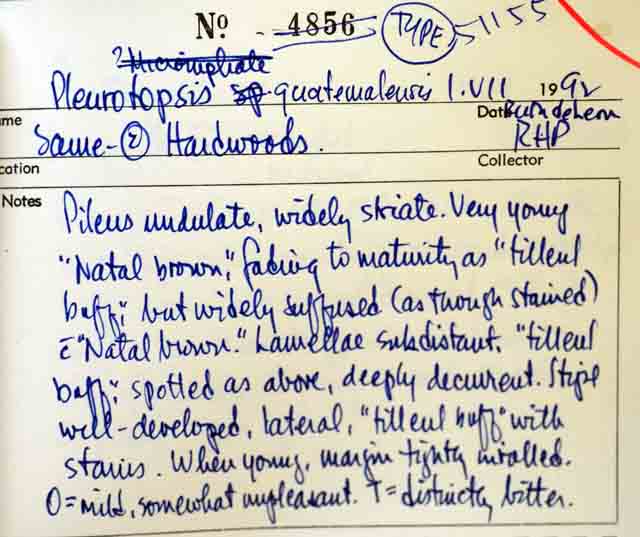 Nº 4856 TYPE 51155
? Micromphale
Pleurotopsis sp. guatemalensis 1.VII 1992
me Date
Same - ② Hardwoods. RHP
cation Collector
Notes Pileus undulate, widely striate. Very young
"Natal brown", fading to maturity as "tilleul
buff", but widely suffused (as though stained)
c̄ "Natal brown." Lamellae subdistant, "tilleul
buff", spotted as above, deeply decurrent. Stipe
well-developed, lateral, "tilleul buff" with
stains. When young, margin tightly inrolled.
O = mild, somewhat unpleasant. T = distinctly bitter.